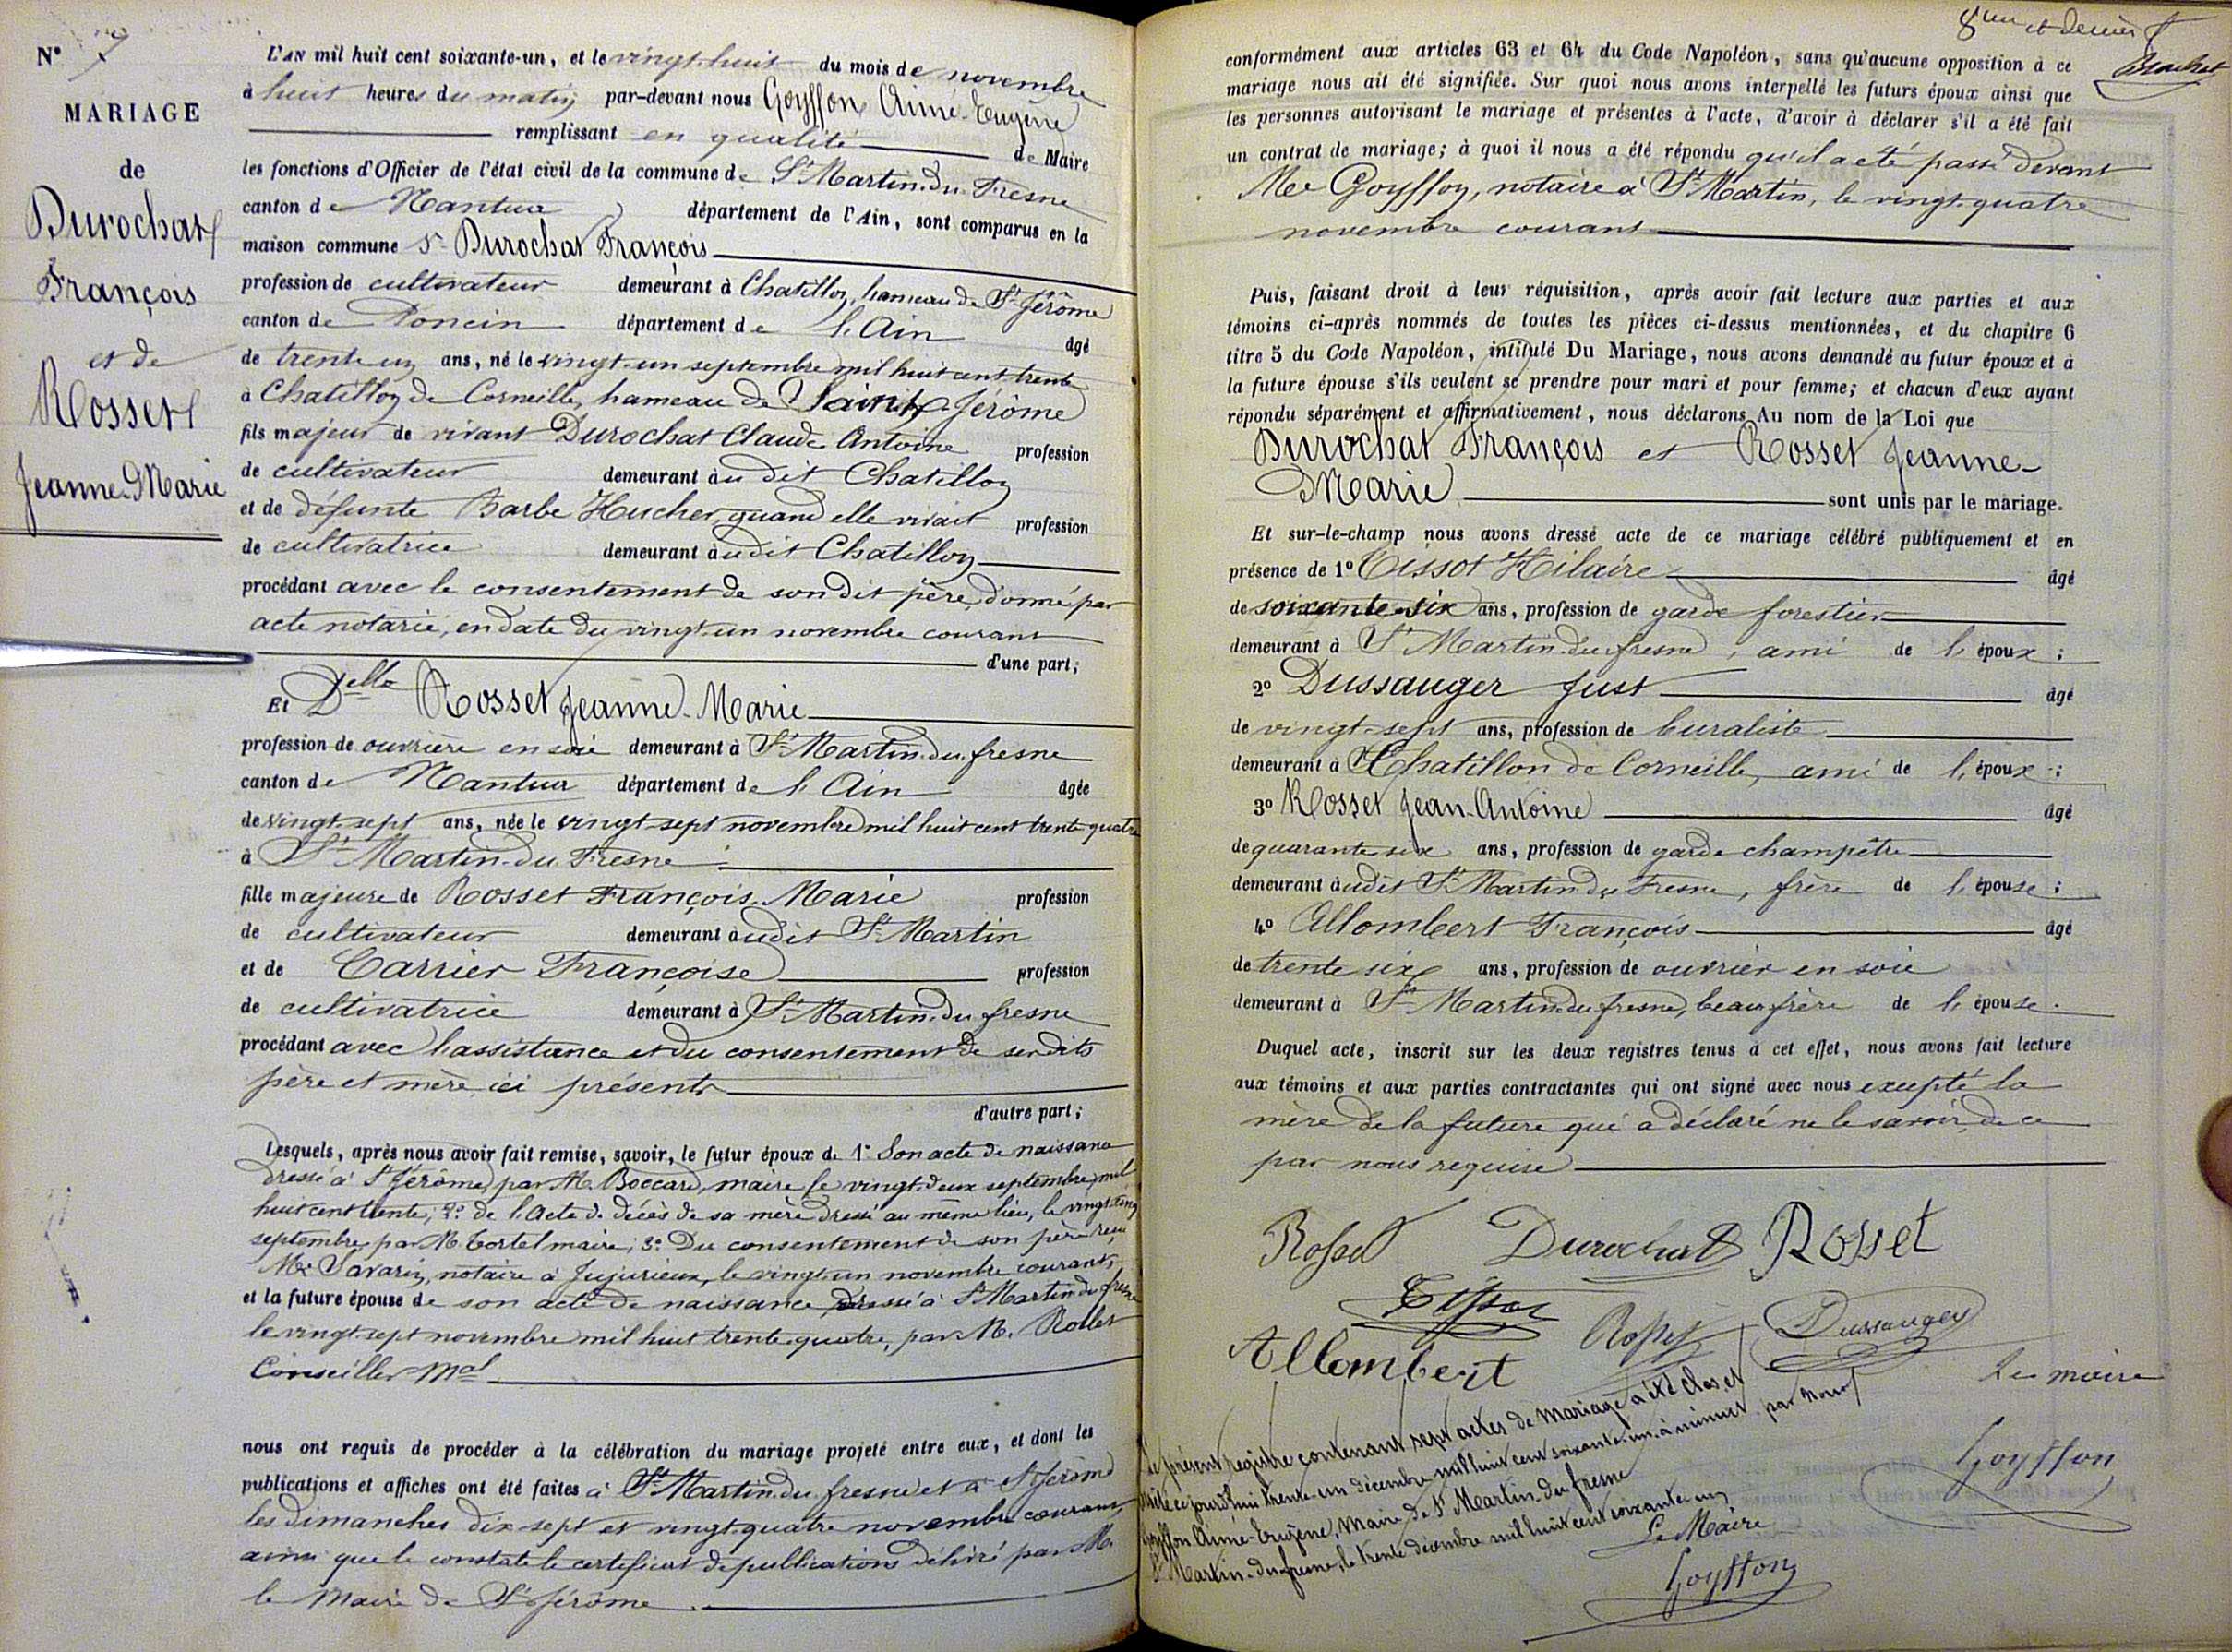 N° 7
MARIAGE
de
Durochat
François
et de
Rosset
Jeanne-Marie
L'AN mil huit cent soixante-un, et le vingt-huit du mois de novembre
à huit heures du matin par-devant nous Goyffon Aimé-Eugène
remplissant en qualité de Maire
les fonctions d'Officier de l'état civil de la commune de St Martin-du-Fresne
canton de Nantua département de l'Ain, sont comparus en la
maison commune Sr Durochat François
profession de cultivateur demeurant à Chatillon, hameau de St Jérôme
canton de Poncin département de l'Ain âgé
de trente un ans, né le vingt-un septembre mil huit cent trente
à Chatillon de Corneille, hameau de Saint Jérôme
fils majeur de vivant Durochat Claude Antoine profession
de cultivateur demeurant àudit Chatillon
et de défunte Barbe Hucher, quand elle vivait profession
de cultivatrice demeurant àudit Chatillon
procédant avec le consentement de son dit père, donné par
acte notarié, en date du vingt-un novembre courant
d'une part;
Et Delle Rosset Jeanne-Marie
profession de ouvrière en soie demeurant à St Martin-du-fresne
canton de Nantua département de l'Ain âgée
de vingt-sept ans, née le vingt-sept novembre mil huit cent trente quatre
à St Martin-du-Fresne
fille majeure de Rosset François-Marie profession
de cultivateur demeurant àudit St Martin
et de Carrier Françoise profession
de cultivatrice demeurant à St Martin-du-fresne
procédant avec l'assistance et du consentement de ses dits
père et mère ici présents
d'autre part;
Lesquels, après nous avoir fait remise, savoir, le futur époux de 1° Son acte de naissance
dressé à St Jérôme, par M. Boccard, maire le vingt-deux septembre mil
huit cent trente; 2° de l'Acte de décès de sa mère dressé au même lieu, le vingt-cinq
septembre par M. Tortel maire; 3° Du consentement de son père reçu
Me Savarin, notaire à Jujurieux, le vingt-un novembre courant;
et la future épouse de son acte de naissance dressé à St Martin-du-fresne
le vingt-sept novembre mil huit trente-quatre, par M. Rollet
Conseiller Mal
nous ont requis de procéder à la célébration du mariage projeté entre eux, et dont les
publications et affiches ont été faites à St Martin-du-fresne et à St Jérôme
les dimanches dix-sept et vingt-quatre novembre courant,
ainsi que le constate le certificat de publications délivré par M.
le Maire de St Jérôme.
8me et dernier f
Brachet
conformément aux articles 63 et 64 du Code Napoléon, sans qu'aucune opposition à ce
mariage nous ait été signifiée. Sur quoi nous avons interpellé les futurs époux ainsi que
les personnes autorisant le mariage et présentes à l'acte, d'avoir à déclarer s'il a été fait
un contrat de mariage; à quoi il nous a été répondu qu'il a été passé devant
Me Goyffon, notaire à St Martin, le vingt-quatre
novembre courant
Puis, faisant droit à leur réquisition, après avoir fait lecture aux parties et aux
témoins ci-après nommés de toutes les pièces ci-dessus mentionnées, et du chapitre 6
titre 5 du Code Napoléon, intitulé Du Mariage, nous avons demandé au futur époux et à
la future épouse s'ils veulent se prendre pour mari et pour femme; et chacun d'eux ayant
répondu séparément et affirmativement, nous déclarons Au nom de la Loi que
Durochat François et Rosset Jeanne-
Marie sont unis par le mariage.
Et sur-le-champ nous avons dressé acte de ce mariage célébré publiquement et en
présence de 1° Tissot Hilaire âgé
de soixante-six ans, profession de garde forestier
demeurant à St Martin-du-fresne, ami de l'époux;
2° Dussauger Just âgé
de vingt-sept ans, profession de buraliste
demeurant à Chatillon de Corneille, ami de l'époux;
3° Rosset Jean-Antoine âgé
de quarante six ans, profession de garde champêtre
demeurant àudit St Martin du Fresne, frère de l'épouse;
4° Allombert François âgé
de trente six ans, profession de ouvrier en soie
demeurant à St Martin-du-fresne, beau-frère de l'épouse.
Duquel acte, inscrit sur les deux registres tenus à cet effet, nous avons fait lecture
aux témoins et aux parties contractantes qui ont signé avec nous excepté la
mère de la future qui a déclaré ne le savoir, de ce
par nous requise
Rosset Durochat Rosset
Tissot Rosset Dussauger
Allombert
Le maire
Goyffon
Le présent registre contenant sept actes de Mariage a été clos et
arrêté ce jourd'hui trente-un décembre mil huit cent soixante-un à minuit par nous
Goyffon Aimé-Eugène, Maire de St Martin-du-fresne
St Martin-du-fresne, le trente décembre mil huit cent soixante-un
Le Maire
Goyffon